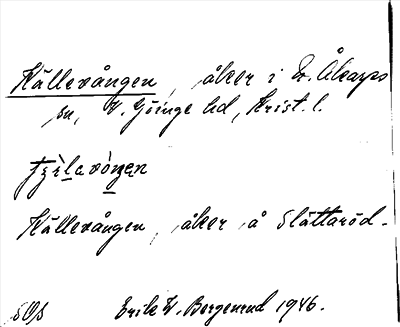 Källevången, åker i V. Åkarps
sn, V. Göinge hd, Krist. l.
Källevången, åker å Slättaröd.
Erik W. Bergenrud 1946.